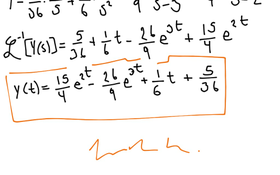 ℒ⁻¹[Y(s)] = 5/36 + 1/6 t - 26/9 e^{3t} + 15/4 e^{2t}
y(t) = 15/4 e^{2t} - 26/9 e^{3t} + 1/6 t + 5/36